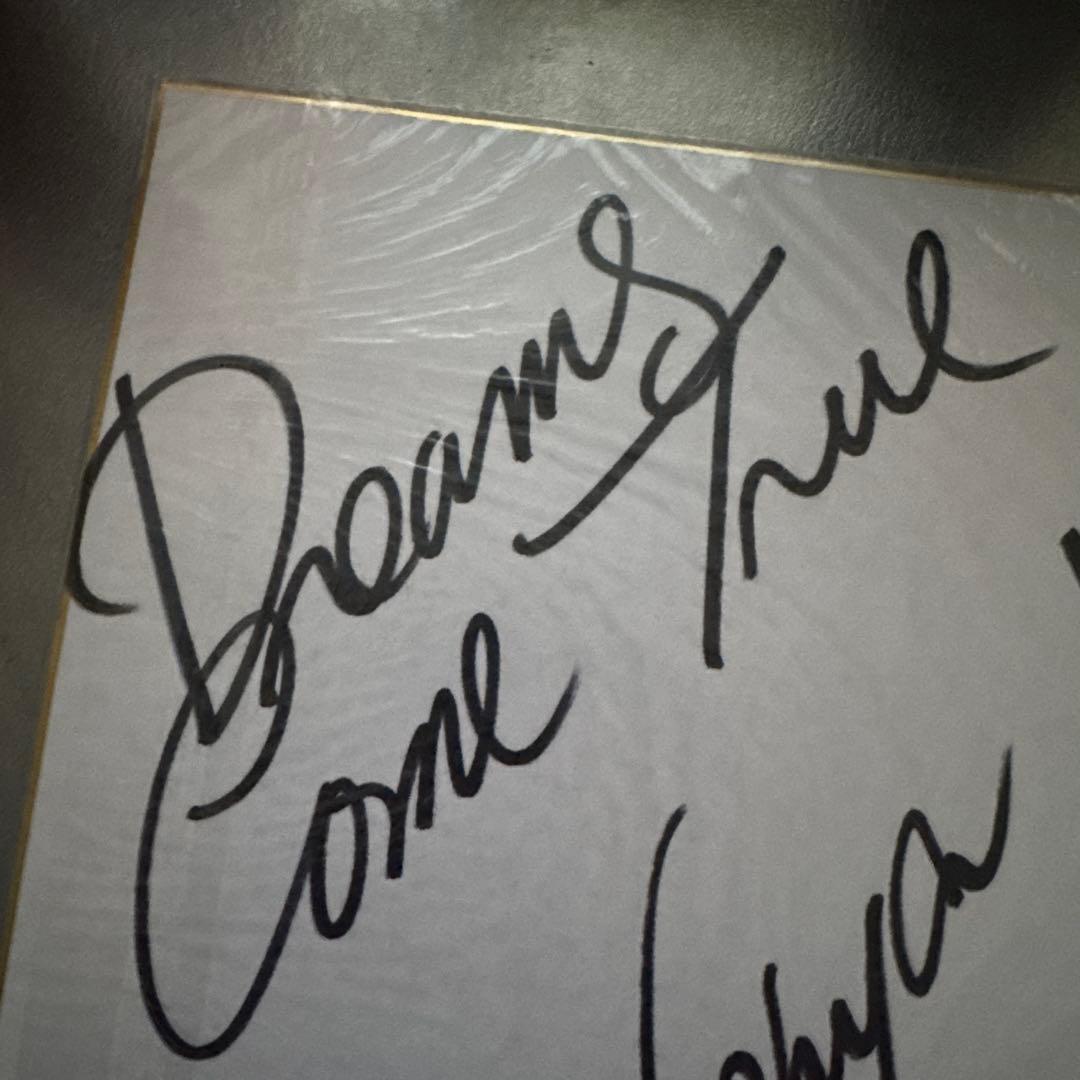 Dreams
Come
True